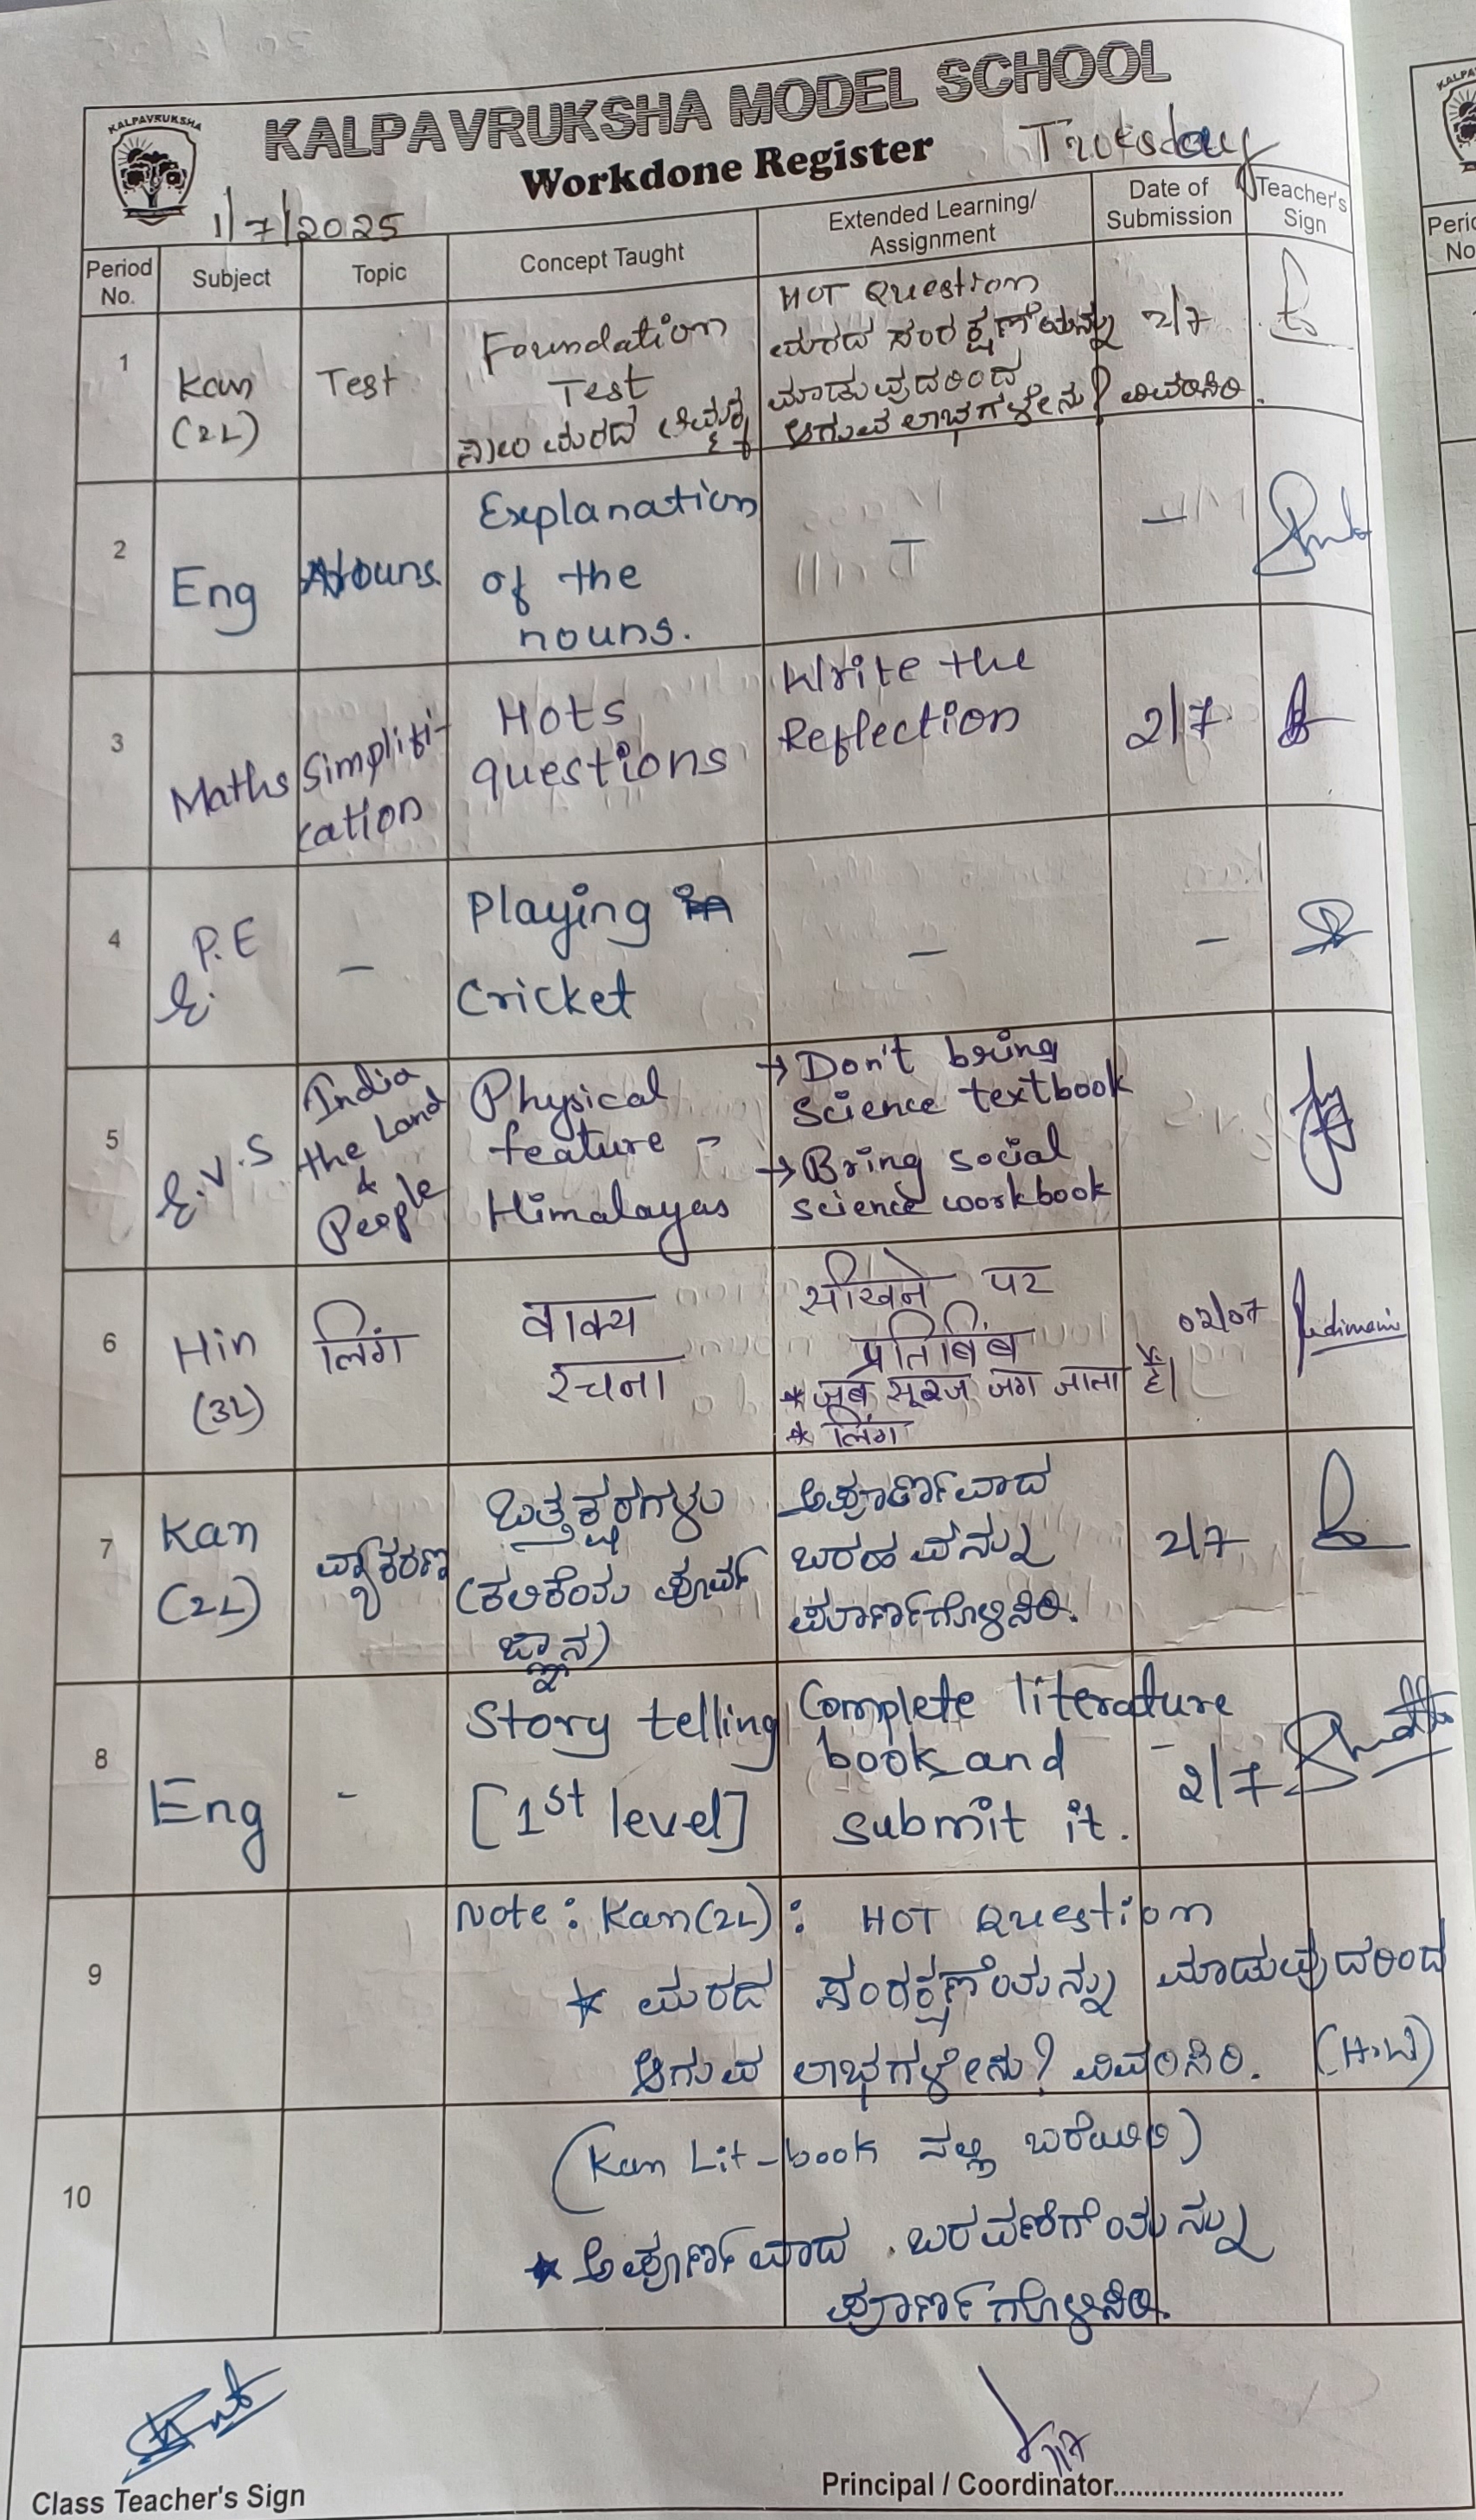 KALPAVRUKSHA
KALPAVRUKSHA MODEL SCHOOL
Workdone Register
Tuesday
1/7/2025
Period No.
Subject
Topic
Concept Taught
Extended Learning/ Assignment
Date of Submission
Teacher's Sign
1
Kan
(2L)
Test
Foundation
Test
ಮರದ
HOT Question
ಮರದ ಸಂರಕ್ಷಣೆಯನ್ನು
ಮಾಡುವುದರಿಂದ
ಆಗುವ ಲಾಭಗಳೇನು? ವಿವರಿಸಿರಿ.
2/7
2
Eng
Nouns
Explanation
of the
nouns.
-
-
3
Maths
Simplifi-
cation
Hots
questions
Write the
Reflection
2/7
4
P.E
-
Playing
Cricket
-
-
5
E.V.S
India
the Land
&
People
Physical
feature -
Himalayas
→ Don't bring
science textbook
→ Bring social
science workbook
6
Hin
(3L)
लिंग
वाक्य
रचना
सीखने पर
प्रतिबिंब
* जब सूरज जग जाता है।
* लिंग
02/07
7
Kan
(2L)
ವ್ಯಾಕರಣ
ಒತ್ತಕ್ಷರಗಳು
(ಕಲಿಕೆಯ ಪೂರ್ವ
ಜ್ಞಾನ)
ಅಪೂರ್ಣವಾದ
ಬರಹವನ್ನು
ಪೂರ್ಣಗೊಳಿಸಿರಿ.
2/7
8
Eng
-
Story telling
[1st level]
Complete literature
book and
submit it.
2/7
9
Note: Kan(2L): HOT Question
* ಮರದ ಸಂರಕ್ಷಣೆಯನ್ನು ಮಾಡುವುದರಿಂದ
ಆಗುವ ಲಾಭಗಳೇನು? ವಿವರಿಸಿರಿ. (H.W)
10
(Kan Lit-book ನಲ್ಲಿ ಬರೆಯಿರಿ)
* ಅಪೂರ್ಣವಾದ ಬರವಣಿಗೆಯನ್ನು
ಪೂರ್ಣಗೊಳಿಸಿರಿ.
Class Teacher's Sign
Principal / Coordinator